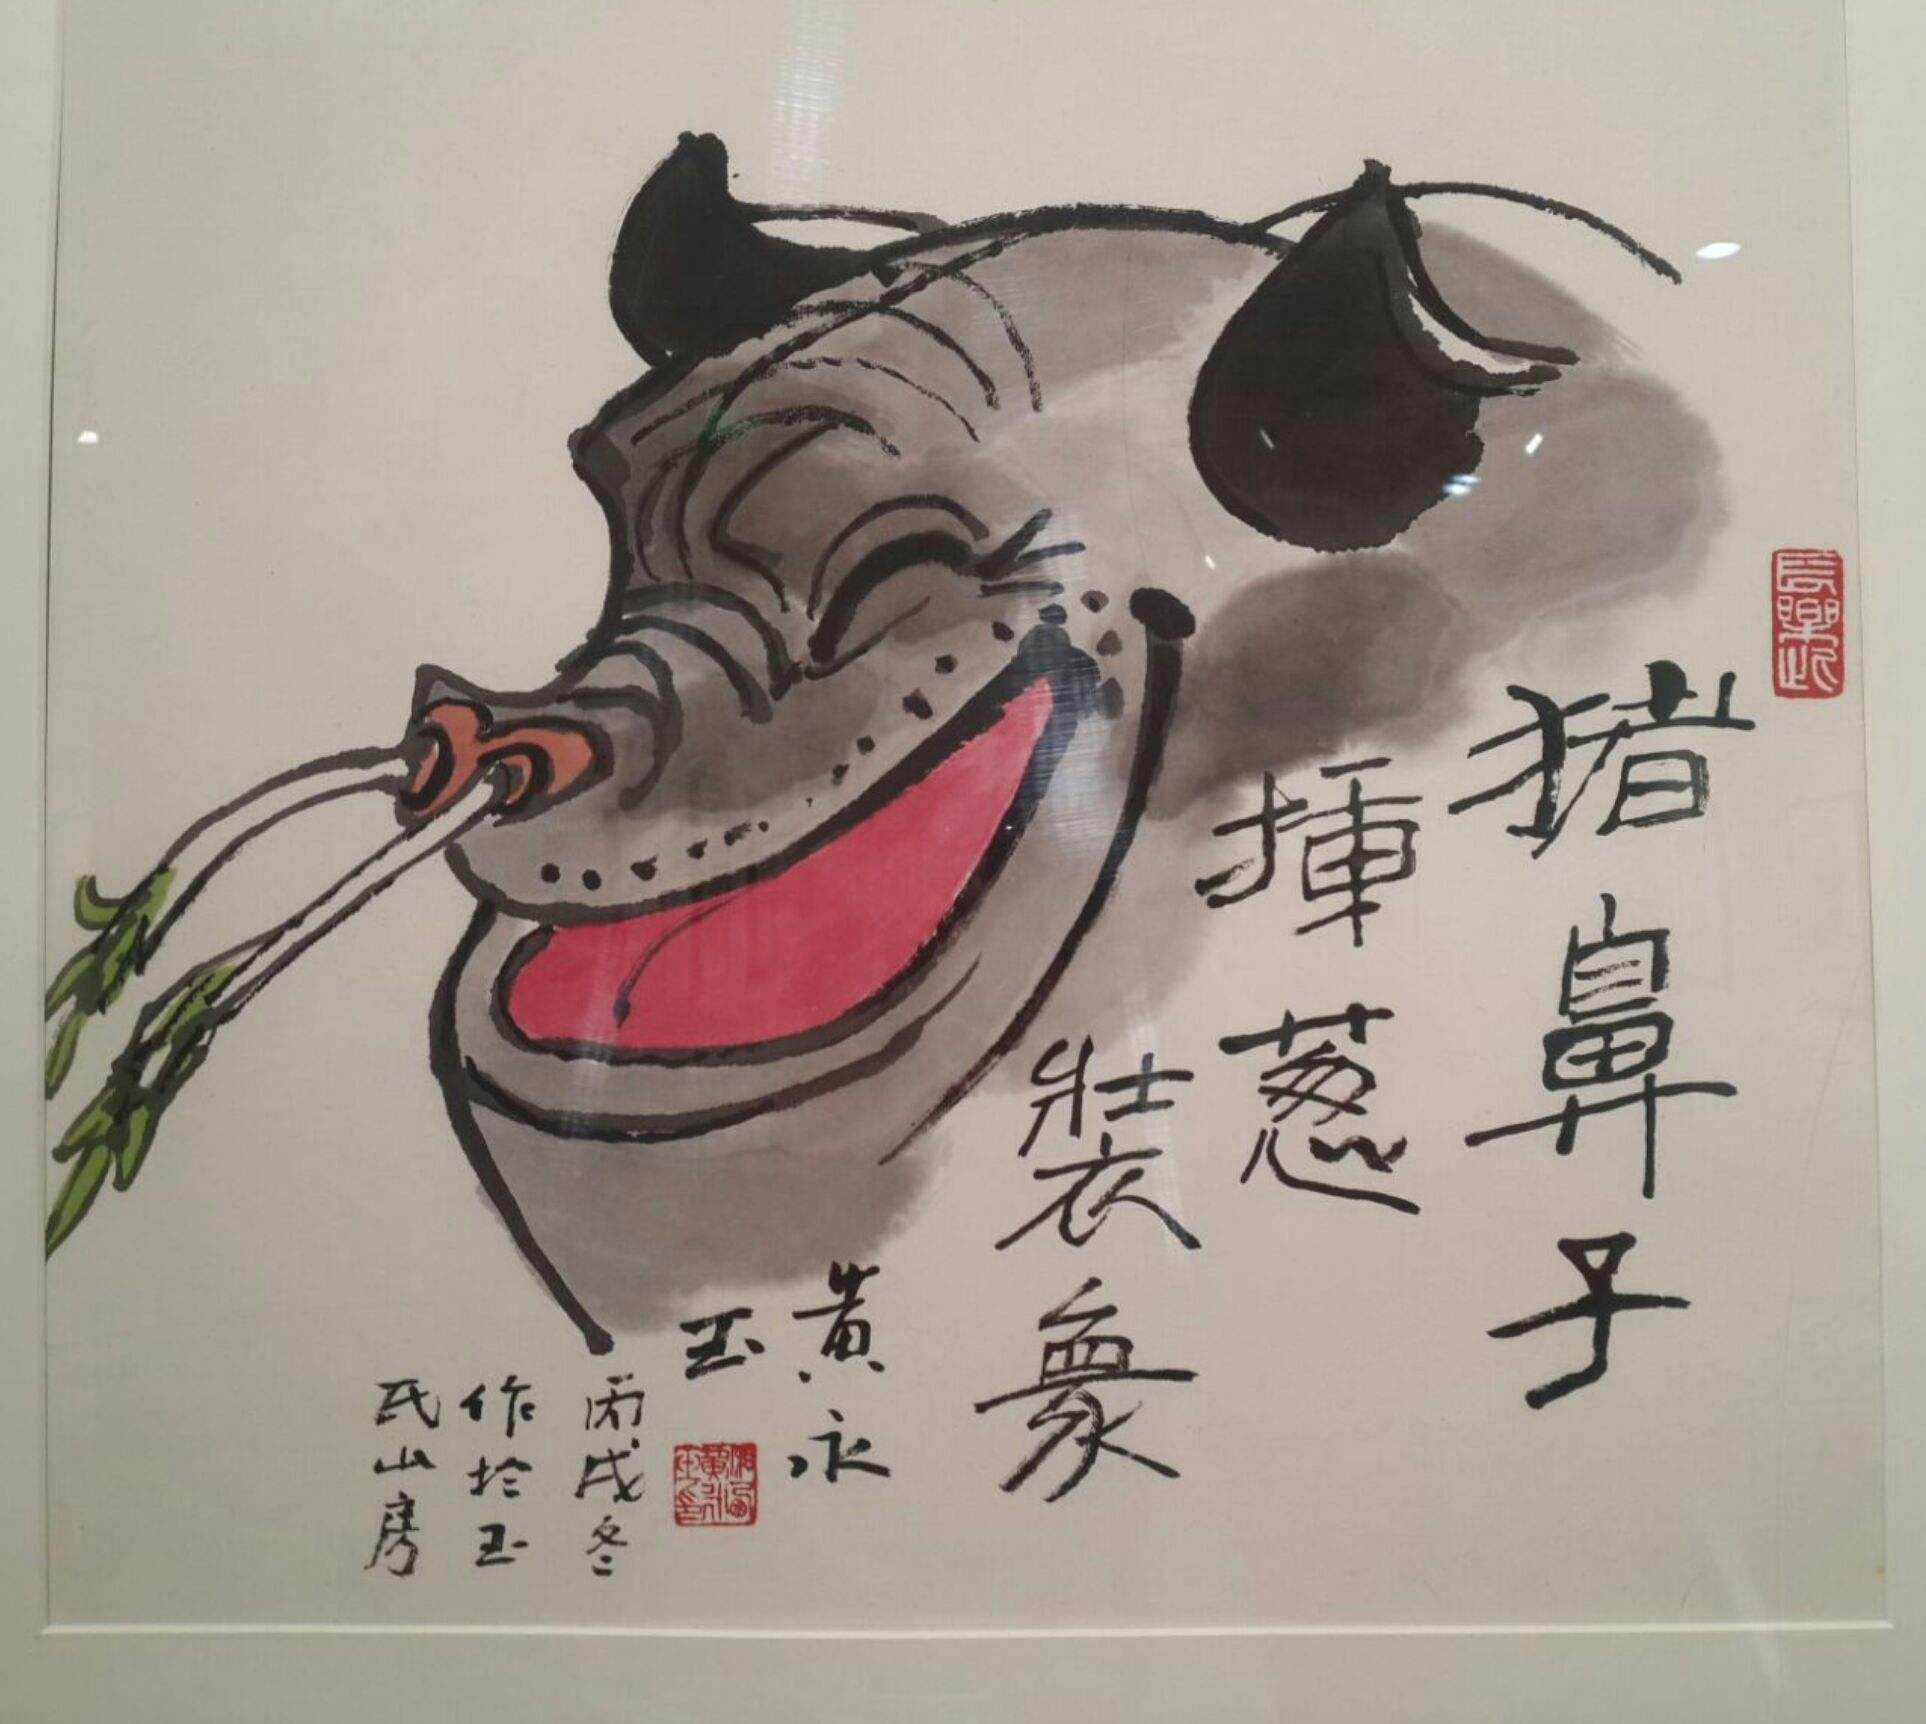 猪鼻子
插葱
裝象
黄永
玉
丙戌冬
作於玉
氏山房